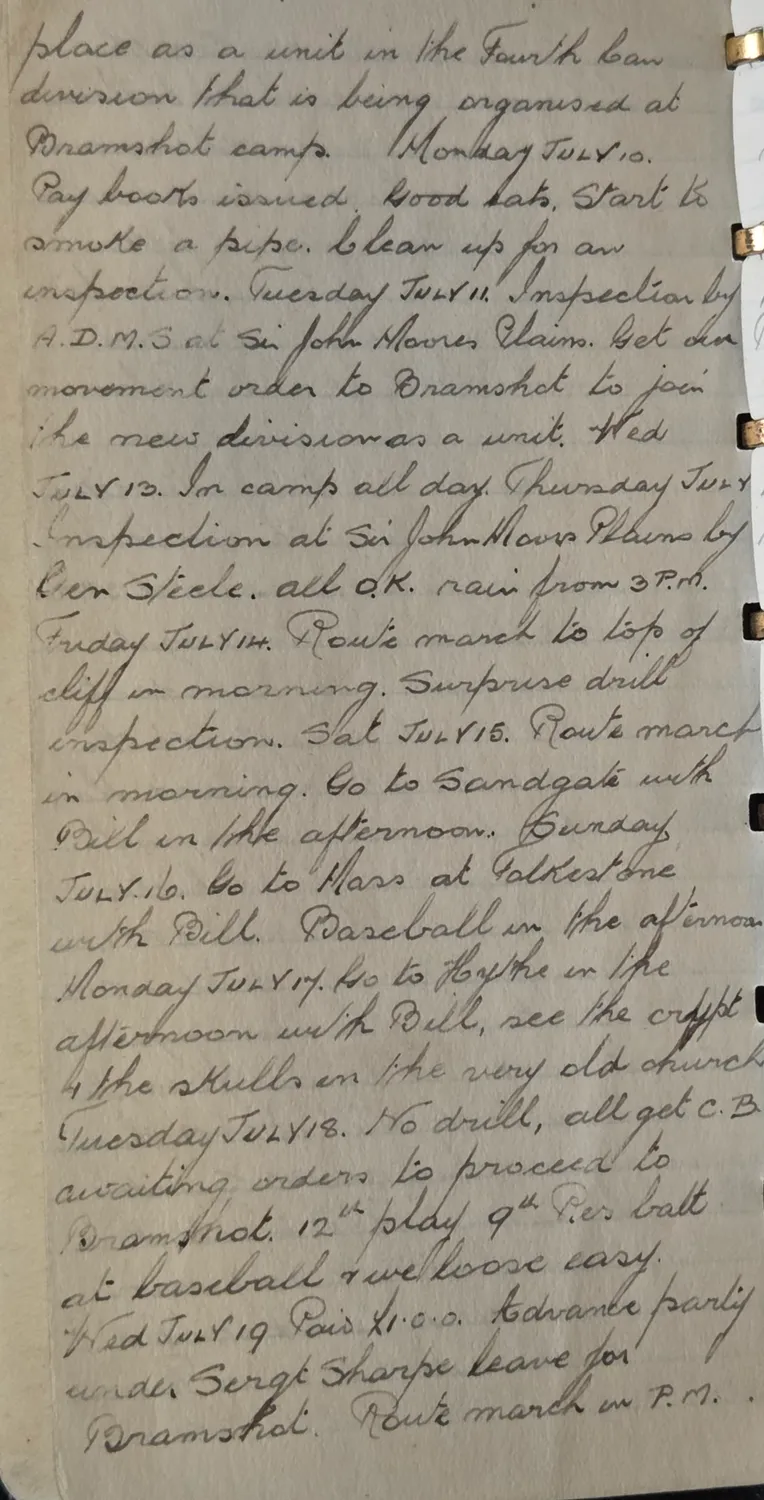 place as a unit in the Fourth Can
division that is being organised at
Bramshot camp. Monday JULY 10.
Pay books issued. Good eats. Start to
smoke a pipe. Clean up for an
inspection. Tuesday JULY 11. Inspection by
A.D.M.S at Sir John Moores Plains. Get our
movement order to Bramshot to join
the new division as a unit. Wed
JULY 13. In camp all day. Thursday JULY
Inspection at Sir John Moores Plains by
Gen Steele. all O.K. rain from 3 P.M.
Friday JULY 14. Route march to top of
cliff in morning. Surprise drill
inspection. Sat JULY 15. Route march
in morning. Go to Sandgate with
Bill in the afternoon. Sunday
JULY. 16. Go to Mass at Folkestone
with Bill. Baseball in the afternoon
Monday JULY 17. Go to Hythe in the
afternoon with Bill, see the crypt
& the skulls in the very old church
Tuesday JULY 18. No drill, all get C.B.
awaiting orders to proceed to
Bramshot. 12th play 9th Res batt
at baseball & we loose easy.
Wed JULY 19 Paid £1.0.0. Advance party
under Sergt Sharpe leave for
Bramshot. Route march in P.M.